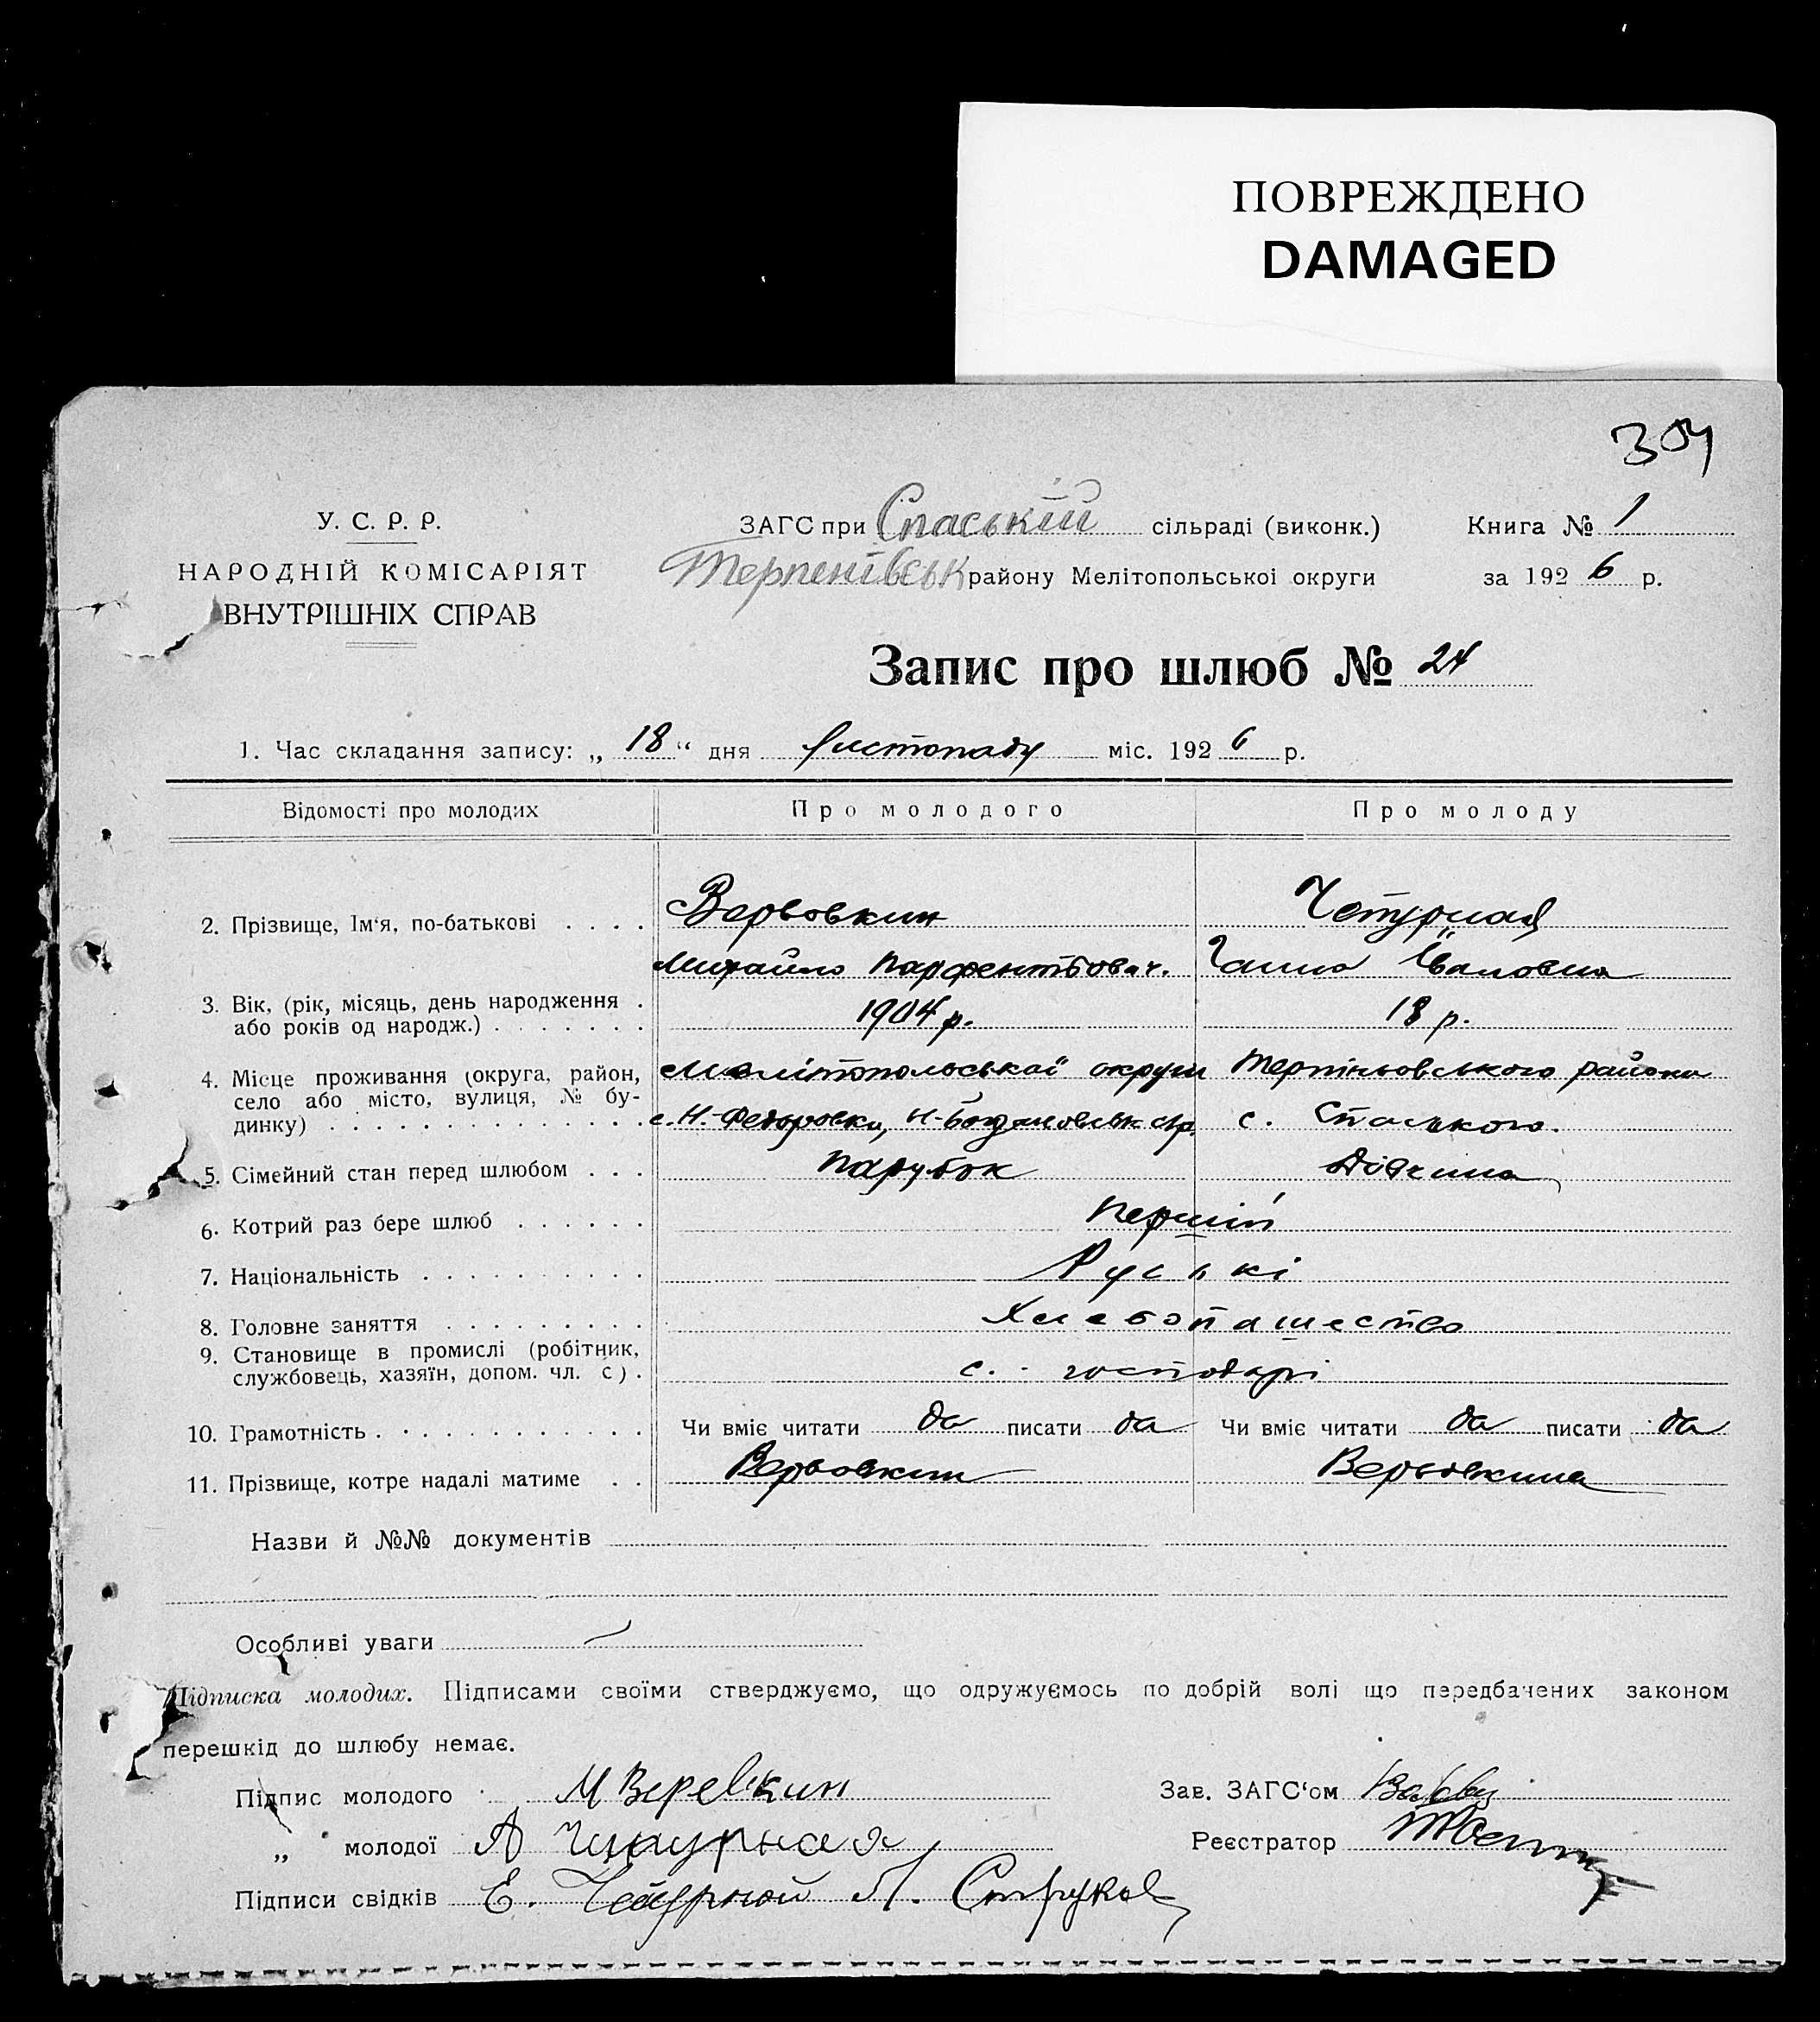 ПОВРЕЖДЕНО
DAMAGED
304
У. С. Р. Р.
НАРОДНІЙ КОМІСАРІЯТ
ВНУТРІШНІХ СПРАВ
ЗАГС при Спаській сільраді (виконк.)
Терпенівськ району Мелітопольскої округи
Книга № 1
за 1926 р.
Запис про шлюб № 24
1. Час складання запису: „ 18 “ дня листопаду міс. 1926 р.
Відомості про молодих Про молодого Про молоду
2. Прізвище, Ім‘я, по-батькові . . . . Вервовкин Чепурная
Михайло Парфентьович. Ганна Івановна
3. Вік, (рік, місяць, день народження .
або років од народж.) . . . . . . . 1904 р. 18 р.
4. Місце проживання (округа, район, Мелітопольської округи Терпіньовського района
село або місто, вулиця, № бу-
динку) . . . . . . . . . . . . . . с. Н.-Федоровки, Н-Богдановськ с. Спаського.
5. Сімейний стан перед шлюбом . . . парубок дівчина
6. Котрий раз бере шлюб . . . . . . перший
7. Національність . . . . . . . . . . Руські
8. Головне заняття . . . . . . . . . Хлебопашество
9. Становище в промислі (робітник,
службовець, хазяїн, допом. чл. с) . с. - господарі
10. Грамотність . . . . . . . . . . . . Чи вміє читати да писати да Чи вміє читати да писати да
11. Прізвище, котре надалі матиме . . Вервовкин Вервовкина
Назви й №№ документів
Особливі уваги —
Підписка молодих. Підписами своїми стверджуємо, що одружуємось по добрій волі що передбачених законом
перешкід до шлюбу немає.
Підпис молодого М Веревкин Зав. ЗАГС‘ом
„ молодої А Чепурная Реєстратор
Підписи свідків Е. Чепурной П. Струков